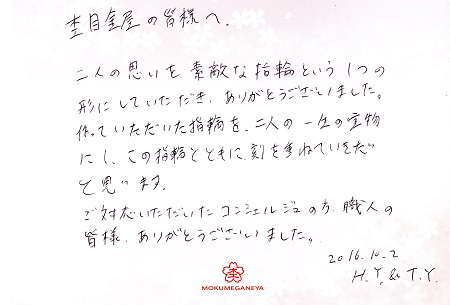 杢目金屋の皆様へ.
二人の思いを素敵な指輪という1つの
形にしていただき、ありがとうございました。
作っていただいた指輪を、二人の一生の宝物
にし、この指輪とともに刻を重ねていきたい
と思います.
ご対応いただいたコンシェルジュの方、職人の
皆様、ありがとうございました。
2016.10.2
H.Y. & T.Y.
MOKUMEGANEYA